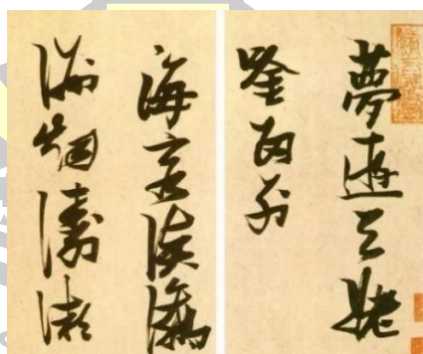 夢遊天姥
唫留別
海客談瀛
洲烟濤微